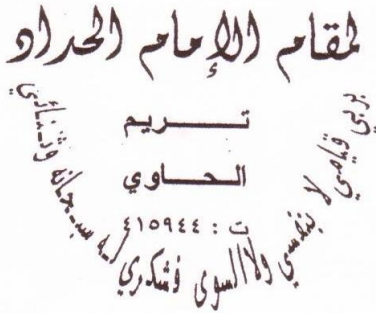 لمقام الإمام الحداد
تـــريم
الحـــاوي
ت : ٤١٥٩٤٤
بربي قيامي لا بنفسي ولا السوى فشكري له سبحانه وثنائي